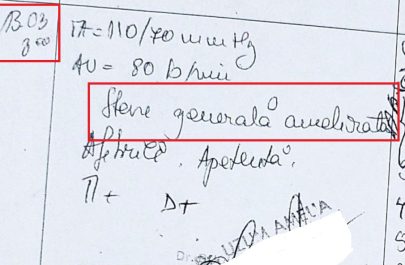 13.03
8:00
TA = 110/70 mmHg
AV = 80 b/min
Stare generală ameliorată
Afebrilă. Apetentă.
D+